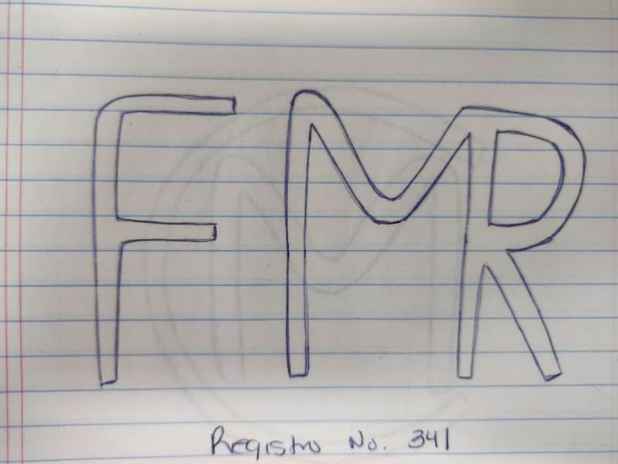 FMR
Registro No. 341